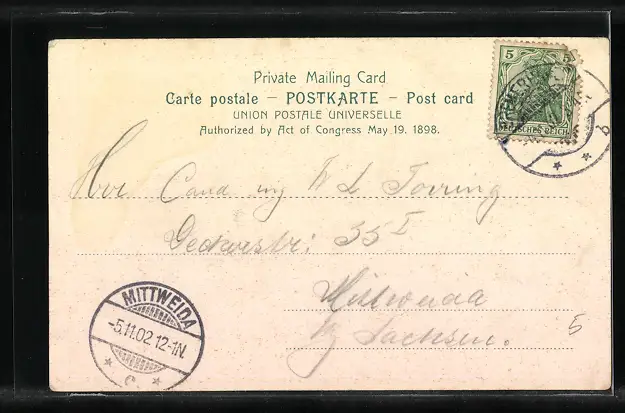 Private Mailing Card
Carte postale – POSTKARTE – Post card
UNION POSTALE UNIVERSELLE
Authorized by Act of Congress May 19. 1898.
5 5
DEUTSCHES REICH
Herr Cand ing
35 I
Mittweida
Sachsen.
5
MITTWEIDA
-5.11.02 12-1N.
* c. *